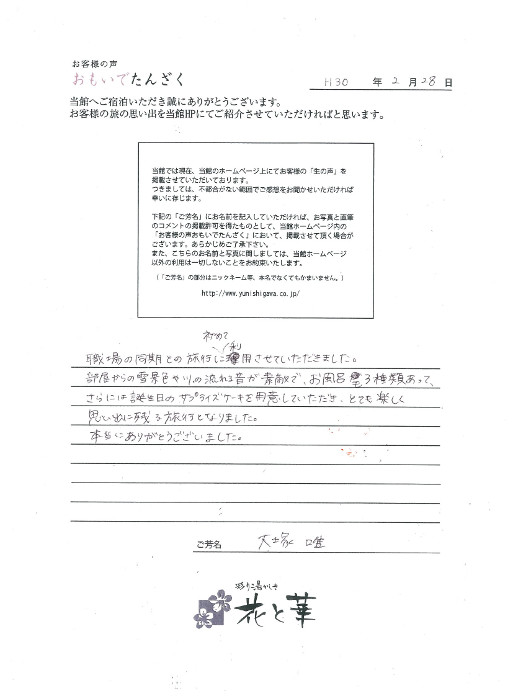 お客様の声
おもいでたんざく
H30 年 2 月 28 日
当館へご宿泊いただき誠にありがとうございます。
お客様の旅の思い出を当館HPにてご紹介させていただければと思います。
当館では現在、当館のホームページ上にてお客様の「生の声」を
掲載させていただいております。
つきましては、不都合がない範囲でご感想をお聞かせいただければ
幸いに存じます。
下記の「ご芳名」にお名前を記入していただければ、お写真と直筆
のコメントの掲載許可を得たものとして、当館ホームページ内の
「お客様の声おもいでたんざく」において、掲載させて頂く場合が
ございます。あらかじめご了承下さい。
また、こちらのお名前と写真に関しましては、当館ホームページ
以外の利用は一切しないことをお約束いたします。
(「ご芳名」の部分はニックネーム等、本名でなくてもかまいません。)
http://www.yunishigawa.co.jp/
初めて
職場の同期との旅行に利用させていただきました。
部屋からの雪景色や川の流れる音が素敵で、お風呂も3種類あって、
さらには誕生日のサプライズケーキを用意していただき、とても楽しく
思い出に残る旅行となりました。
本当にありがとうございました。
ご芳名 大塚 唯
彩り湯かしき
花と華